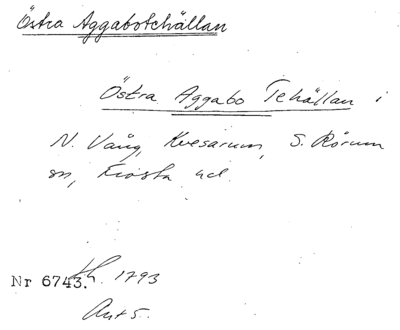 Östra Aggabotehällan
Östra Aggabo Tehällan i
N. Vång, Kvesarum, S. Rörum
sn, Frosta hd.
Nr 6743. 1793
Avt 5.